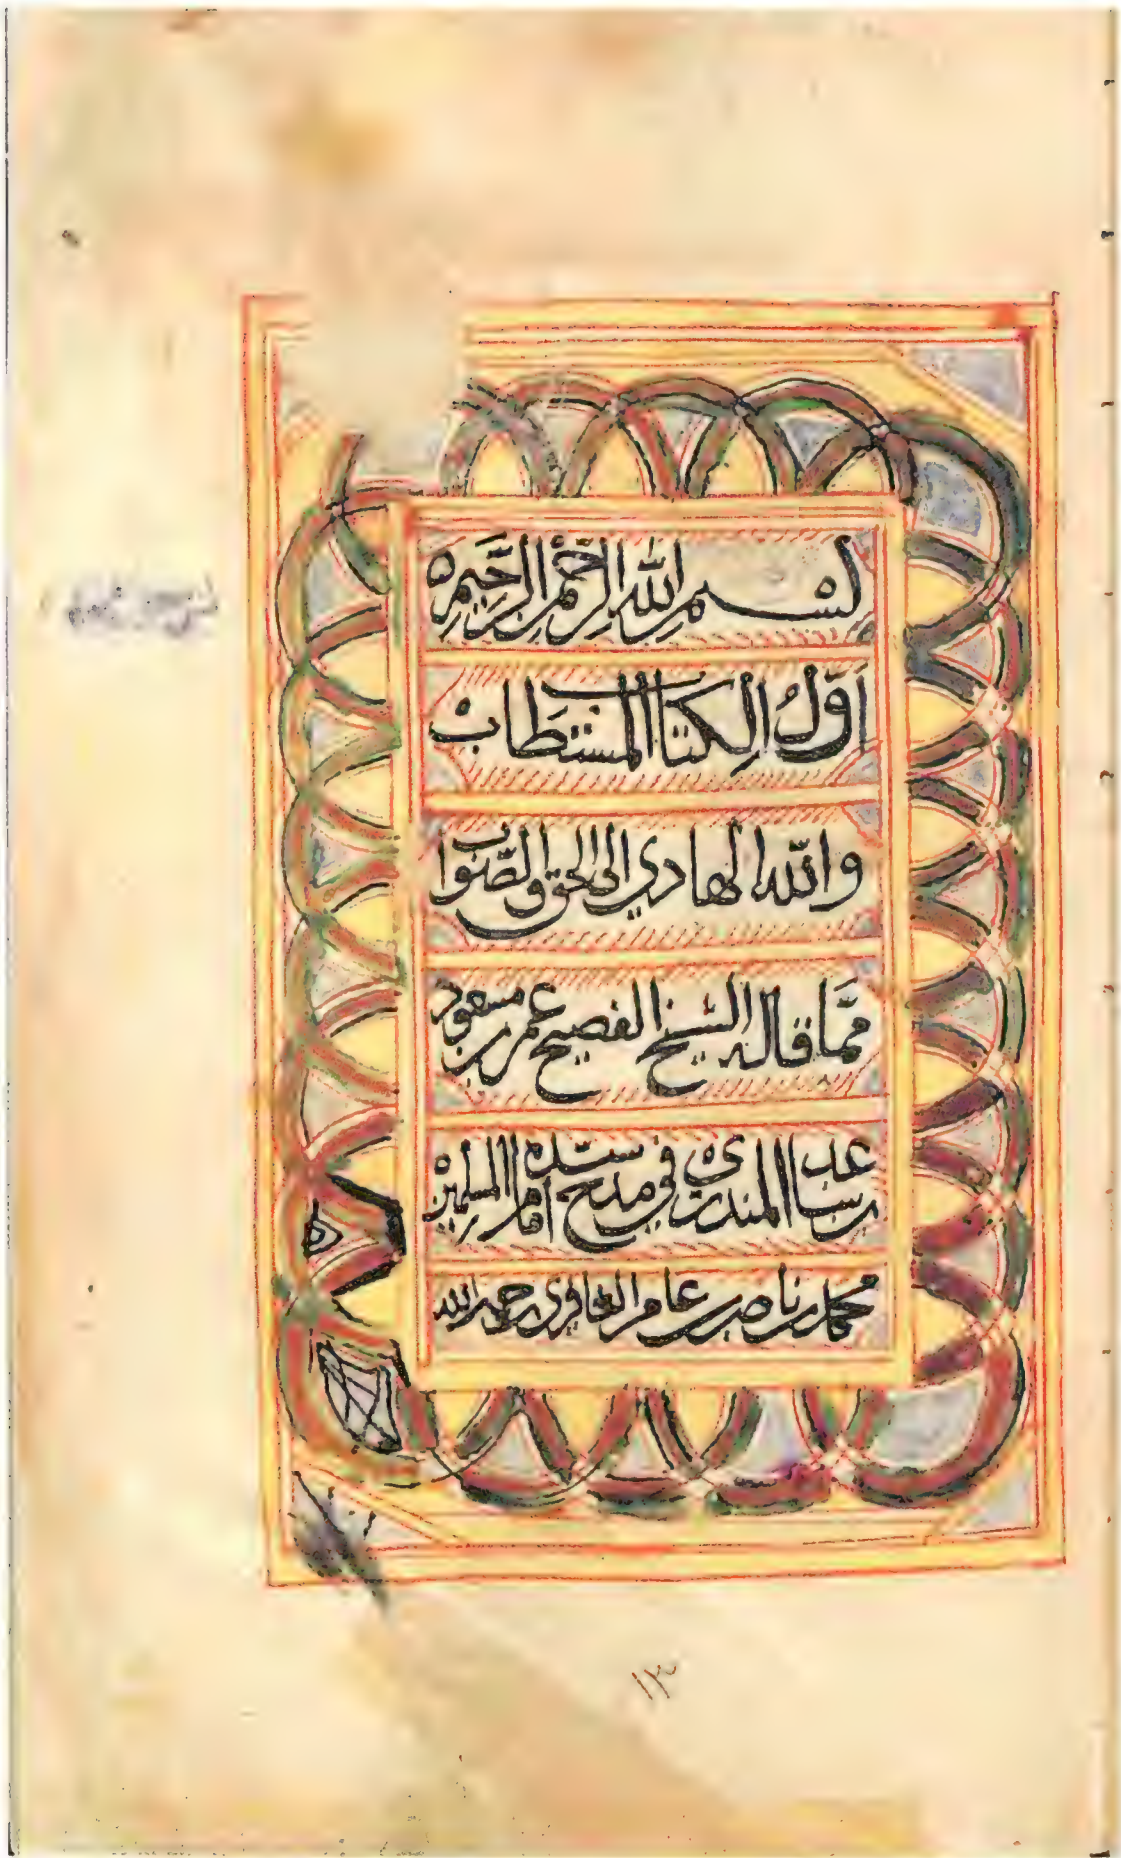 بسم الله الرحمن الرحيم
اول الكتاب المستطاب
والله الهادي الى الحق والصواب
مما قاله الشيخ الفصيح عمر بن مسعود
المنذري في مدح سيده امام المسلمين
محمد بن ناصر بن عامر الغافري رحمه الله
١٣